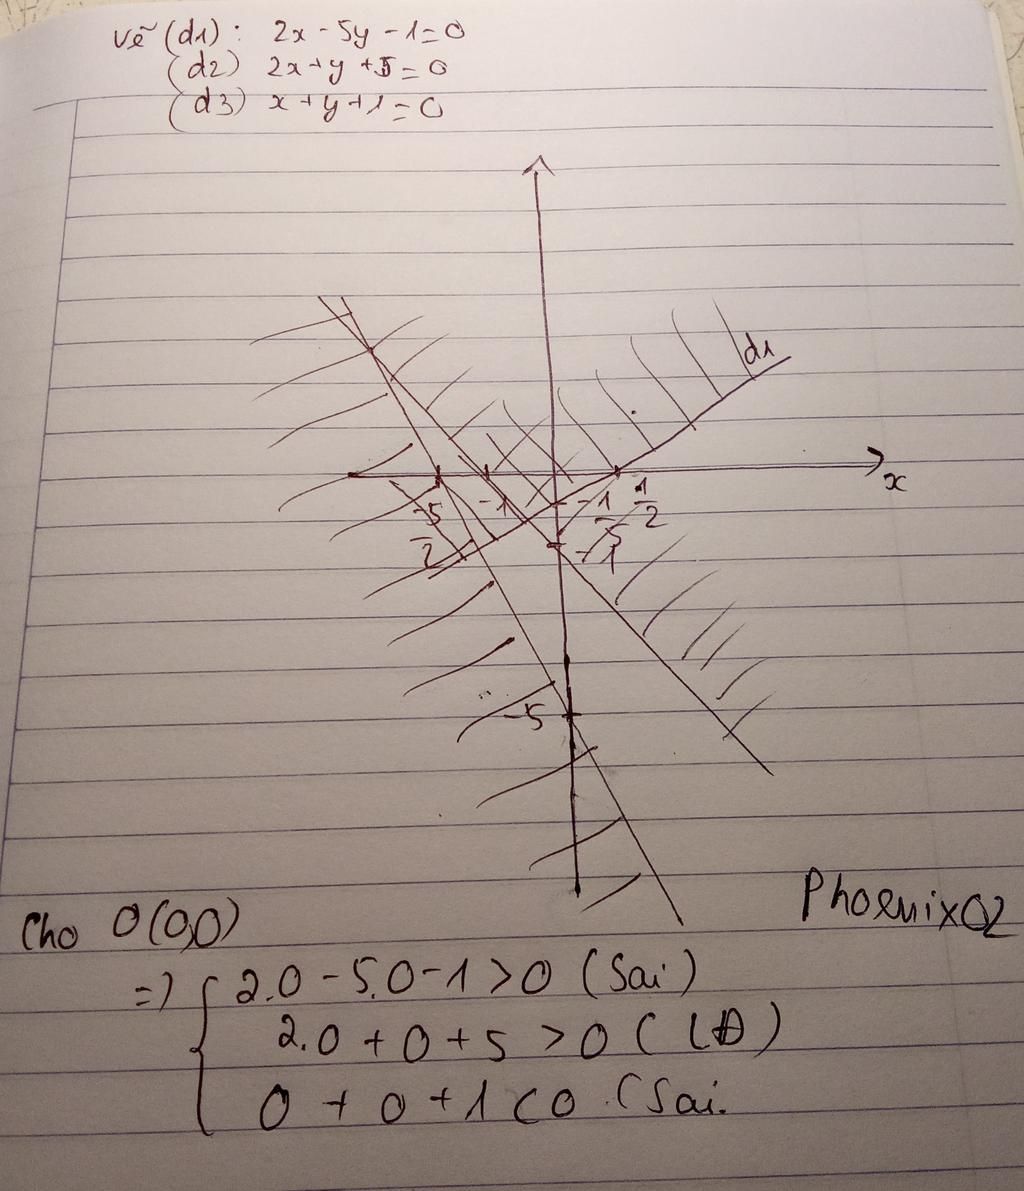 Vẽ (d1): 2x - 5y - 1 = 0
(d2) 2x + y + 5 = 0
(d3) x + y + 1 = 0
d1
x
-5/2
-1
-1/5
1/2
-1
-5
Cho O(0,0)
Phoenix02
=) { 2.0 - 5.0 - 1 > 0 (Sai)
2.0 + 0 + 5 > 0 ( LĐ )
0 + 0 + 1 < 0 (Sai.